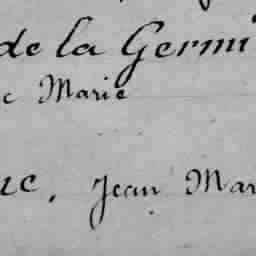 de la Germi
c Marie
uc, Jean Mar